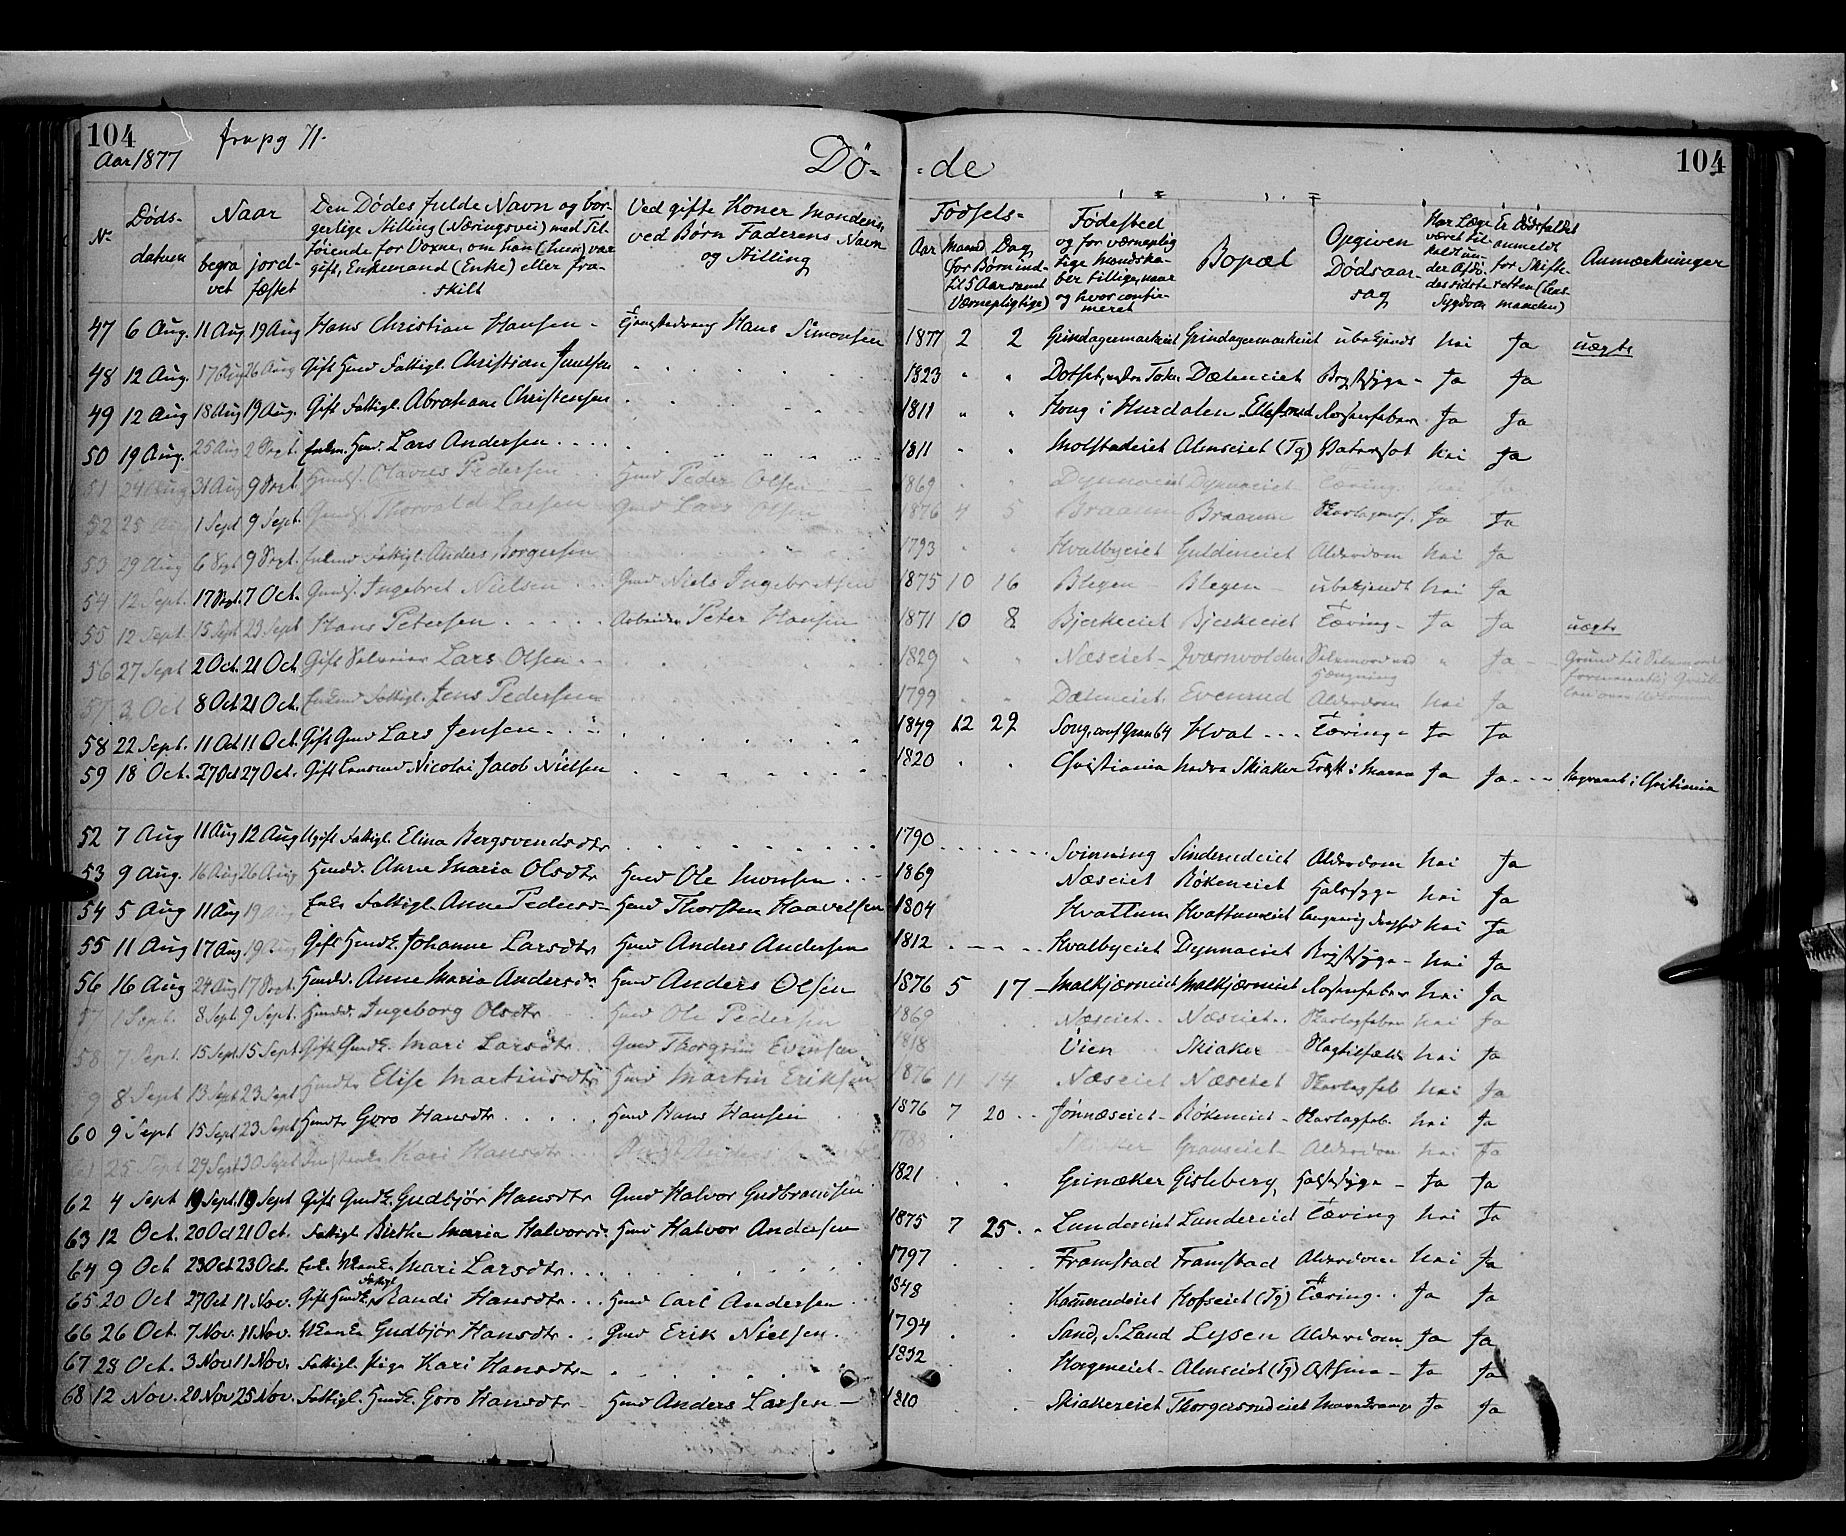 104 fra pg 71. 104
Aar 1877
Dø- -de
No Døds- datum
Naar begra vet jord- fæstet
Den Dødes fulde Navn og bor- gerlige Stilling (Næringsvei) med Til- føiende for Voxne, om han (hun) var gift, Enkemand (Enke) eller fra- skilt
Ved gifte Koner Mandens, ved Børn Faderens Navn og Stilling
Fødsels- Aar Maaned Dag (for Børn ind- til 5 Aar samt Værnepligtige)
Fødested og for værneplig tige Mandska- ber tillige, naar og hvor confir- meret
Bopæl
Opgiven Dødsaar- sag
Har Læge været til- kaldt un- der Afdø- des sidste Sygdom
Er Dødsfaldet anmeldt for Skifte- retten (Lens- manden)
Anmærkninger
47 6 Aug. 11 Aug 19 Aug Hans Christian Hansen - Hans Simonsen 1877 2 2 Grindagermarkeiet Grindagermarkeiet ubekjendt nei Ja uægte
48 12 Aug. 17 Aug 26 Aug Gift Husmd Fattigl. Christian Juulsen 1823 Dæleneiet Brystsyge - Ja Ja
49 12 Aug 18 Aug 19 Aug. Gift Fattigl. Abraham Christensen 1811 Houg i Hurdalen Ellefsrud Ja Ja
50 19 Aug. 25 Aug 2 Sept. Enkm. Husmd. Lars Andersen 1811 Molstadeiet Almseiet (Tg) Vatersot nei Ja
51 24 Aug 31 Aug 9 Sept. Olaves Pedersen Husmd Peder Olsen 1869 Dynnaeiet Dynnaeiet Tæring nei Ja
52 25 1 Sept 9 Sept. Gmds. Thorvald Larsen Gmd Lars Olsen 1876 4 5 Braaum Braaum Ja Ja
53 29 Aug 6 Sept 9 Sept. Enkmd Fattigl. Anders Borgersen 1793 Hvalbyeiet Guldeneiet Alderdom nei Ja
54 12 Sept. 17 Sept. 7 Oct. Gmds. Ingebret Nielsen Gmd Niels Ingebretsen 1875 10 16 Blegen Blegen - ubekjendt nei Ja
55 12 Sept. 15 Sept 23 Sept Hans Petersen Arbeider Peter Hansen 1871 10 8 Bjerkeeiet Bjerkeeiet Tæring - Ja Ja uægte
56 27 Sept 2 Oct. 21 Oct. Gift Lars Olsen 1829 Næseiet - Kværnvolden Selvmord ved Hængning Ja
57 3 Oct 8 Oct 21 Oct. Enkmd Fattigl. Jens Pedersen 1799 Dæleneiet Evenrud Alderdom nei Ja
58 22 Sept. 11 Oct 11 Oct. Gift Gmd Lars Jensen 1849 12 29 Song, conf Gran 64 Hval Tæring - Ja Ja
59 18 Oct. 27 Oct 27 Oct. Gift Lensmd Nicolai Jacob Nielsen 1820 Christiania nedre Skiaker Kræft i Maven Ja Ja begravet i Christiania
52 7 Aug 11 Aug 12 Aug Ugift Fattigl. Elina Bergsvendsdtr 1790 Svinning Sinderudeiet Alderdom nei Ja
53 9 Aug. 16 Aug 26 Aug Husmd. Anne Maria Olsdtr Husmd Ole Monsen 1869 Næseiet Røkeneiet Halssyge nei Ja
54 5 Aug 11 Aug 19 Aug Enke Fattigl. Anne Pedersd- Husmd Thorsten Haavelsen 1804 Hvattum Hvattumseiet nei Ja
55 11 Aug 17 Aug 19 Aug Gift Husmdk. Johanne Larsdtr Husmd Anders Andersen 1812 Hvalbyeiet Dynnaeiet Brystsyge - nei Ja
56 16 Aug 24 Aug 17 Sept. Husmdd. Anne Maria Andersd- Husmd Anders Olsen 1876 5 17 - Malkjærneiet Malkjærneiet nei Ja
57 1 Sept. 8 Sept. 9 Sept. Husmdd. Ingeborg Olsdtr Husmd Ole Pedersen 1869 Næseiet Næseiet Skarlagfeber nei Ja
58 7 Sept. 15 Sept. 15 Sept. Gift Gmdk. Mari Larsdtr Gmd Thorgrim Evensen 1818 Vien Skiaker Slagtilfælde nei Ja
9 8 Sept 13 Sept 23 Sept Elise Martinsdtr Husmd Martin Eriksen 1876 11 14 Næseiet Næseiet Skarlagfeb nei Ja
60 9 Sept 15 Sept 23 Sept Goro Hansdtr Husmd Hans Hansen 1876 7 20 Jønnæseiet - Røkeneiet - Skarlagfeb. nei Ja
61 25 Sept 29 Sept 30 Sept Kari Hansdtr Anders 1788 Skiaker Granseiet - Alderdom nei Ja
62 4 Sept 19 Sept. 19 Sept Gift Gmdk. Gudbjør Hansdtr Gmd Halvor Gudbrandsen 1821 Grinæker Gisleberg Halssyge - Ja Ja
63 12 Oct. 20 Oct 21 Oct. Fattigl. Birthe Maria Halvorsd- Husmd Halvor Andersen 1875 7 25 Lundereiet Lundereiet Tæring nei Ja
64 9 Oct 23 Oct 23 Oct. Mari Larsdtr 1797 Framstad Framstad Alderdom nei Ja
65 20 Oct 27 Oct 11 Nov. Gift Husmdk. Fattigl Randi Hansdtr Husmd Carl Andersen 1848 Hofseiet (Tg) Tæring Ja Ja
66 26 Oct. 7 Nov. 11 Nov. Gudbjør Hansdtr Gmd Erik Nielsen. 1794 Sand, S. Land Lysen Alderdom Ja Ja
67 28 Oct. 3 Nov 11 Nov. Fattigl. Pige Kari Hansdtr - 1832 Horgeneiet - Almseiet (Tg) Asthma - Ja Ja
68 12 Nov. 20 Nov 25 Nov. Fattigl. Husmdk. Goro Hansdtr - Husmd Anders Larsen - 1810 Skiakereiet Thorgersrudeiet Ja Ja